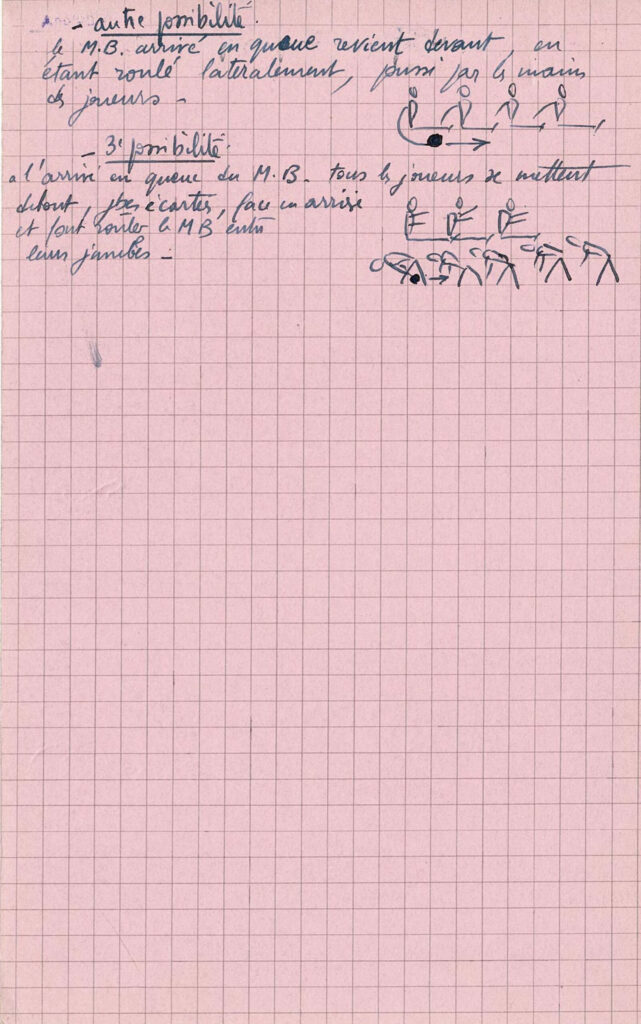 - autre possibilité.
le M.B. arrivé en queue revient devant, en
étant roulé latéralement, par les mains
des joueurs -
- 3e possibilité.
a l'arrivé en queue du M.B. tous les joueurs se mettent
debout, jbes écartes, face en arrière
et font rouler le MB entre
leurs jambes -